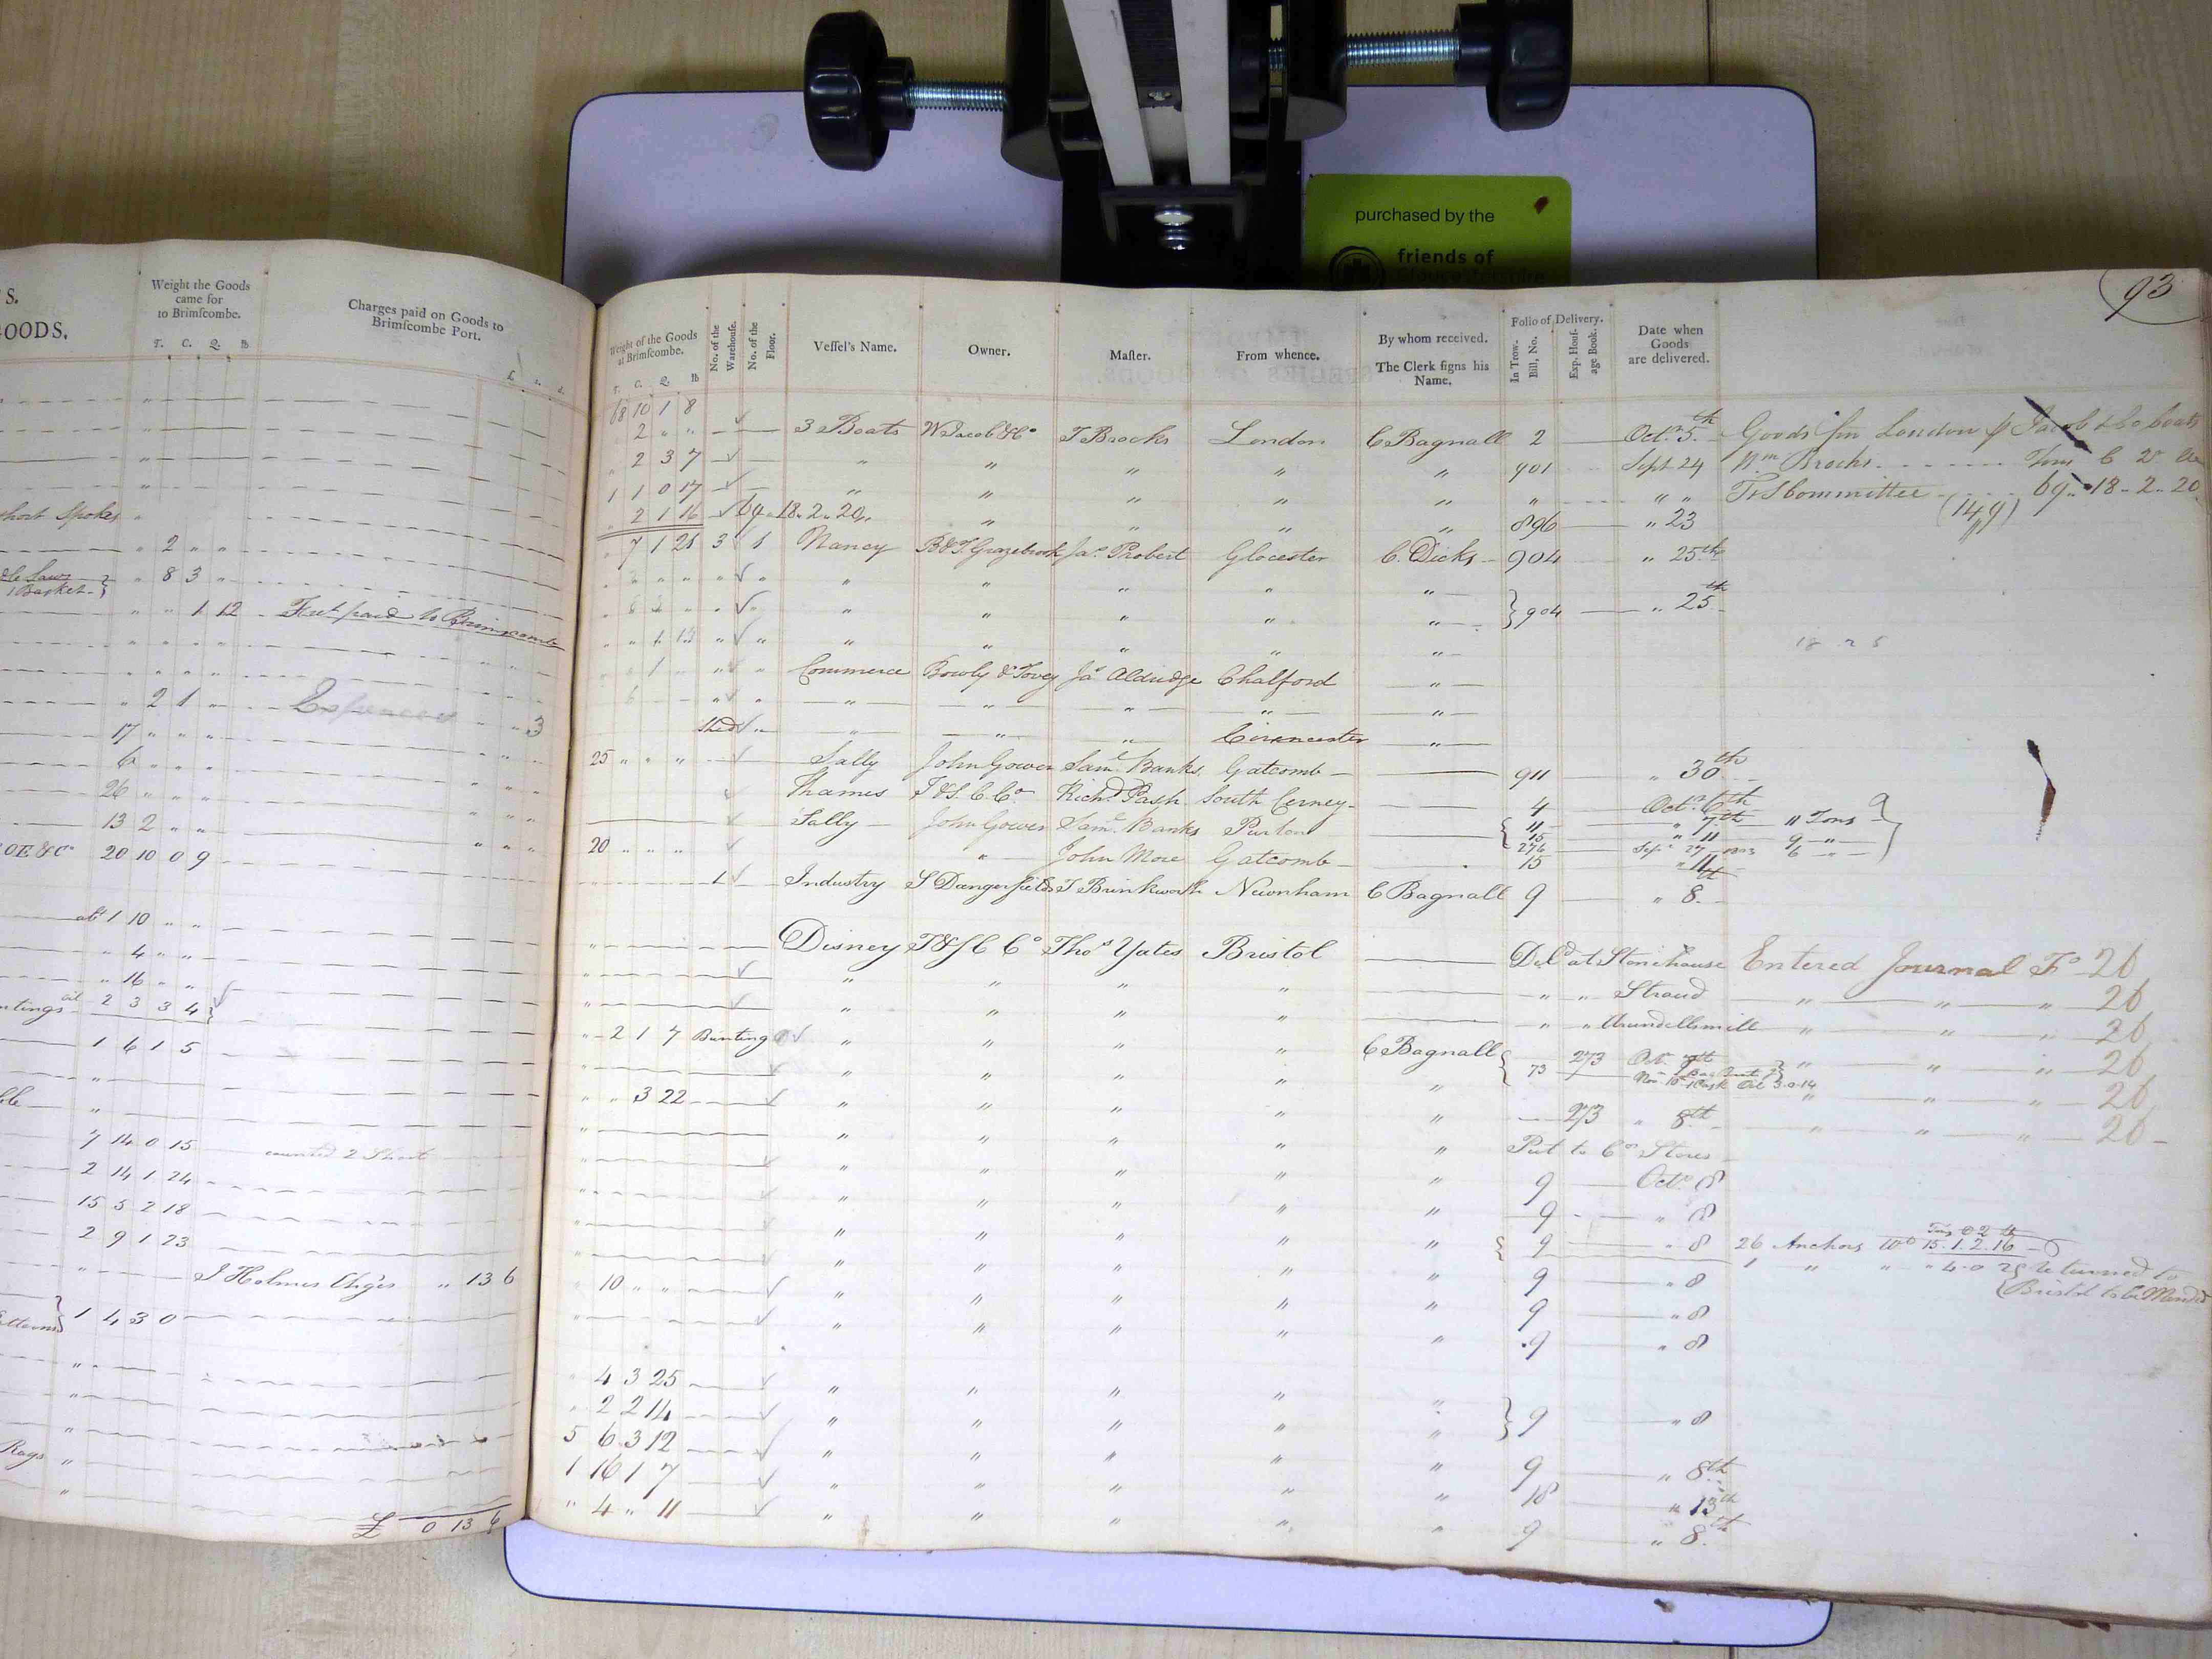 purchased by the
friends of
93
S.
GOODS.
Weight the Goods
came for
to Brimſcombe.
T. C. Q. lb
Charges paid on Goods to
Brimſcombe Port.
£ s. d.
short Spokes
" 2 " "
" 8 3 "
1 Basket
" " 1 12
" 2 1 " Expences " " 3
17 " " "
6 " " "
26 " " "
13 2 " "
20 10 0 9
abt 1 10 " "
" 4 " "
" 16 " "
2 3 3 4
1 6 1 5
7 14 0 15 counted 2 Short
2 14 1 24
15 5 2 18
2 9 1 23
J Holmes Chges " 13 6
1 4 3 0
Rags "
£ 0 13 6
Weight of the Goods
at Brimſcombe.
T. C. Q. lb
No. of the
Warehouſe.
No. of the
Floor.
Veſſel's Name.
Owner.
Maſter.
From whence.
By whom received.
The Clerk ſigns his
Name.
Folio of Delivery.
In Trow-
Bill, No.
Exp. Houſ-
age Book.
Date when
Goods
are delivered.
68 10 1 8
" 2 " " 3 Boats W Jacob & Co T Brooks London C Bagnall 2 Octr 5th Goods fm London Jacob & Co boats
" 2 3 7 " " " " " 901 Sept 24 Wm Brooks
1 1 0 17 " " " " " " " " T&S Committee 69 18 - 2 .. 20
" 2 1 16 69 - 18 .. 2 .. 20 " " " " 896 " 23 (149)
" 7 1 21 3 1 Nancy B&T. Grazebrook Jas. Probert Glocester C. Dicks 904 " 25th
" " " " "
" " " " " 904 " 25th
" " " " "
Commerce Bowly & Tovey Js Aldridge Chalford "
" " " " "
Shed " " " Cirencester "
25 " " " Sally John Gower Saml Banks Gatcomb 911 " 30th
Thames T&S. C. Co. Richd Pash South Cerney 4 Octr 6th
Sally John Gower Saml Banks Purton 11 " 7th 11 Tons
15 " 11 9 "
20 " " " " John More Gatcomb 15 " 11
1 Industry S Dangerfield T Brinkworth Newnham C Bagnall 9 " 8th
Disney T&S C Co Thos Yates Bristol Deld at Stonehouse Entered Journal Fo 26
" " " " " " Stroud " " " 26
" " " " " " Arundellsmill " " " 26
" 2 1 7 Bunting " " " " C Bagnall 73 273 Oct 7th " " " 26
" " " " " " " " 26
" " 3 22 " " " " " 273 " 8th " " " 26
" " " " " Put to Co Stores
" " " " " 9 Octr 8
" " " " " 9 " 8
" " " " " 9 " 8 26 Anchors Wt 15 . 1 . 2 . 16
" 10 " " " " " " " 9 " 8 1 " " " 4 - 0 2 returned to
" " " " " 9 " 8 Bristol to be Mended
" " " " " 9 " 8
" 4 3 25 " " " " "
" 2 2 14 " " " " " 9 " 8
5 6 3 12 " " " " "
1 16 1 7 " " " " " 9 " 8th
" 4 " 11 " " " " " 18 " 13th
9 " 8th